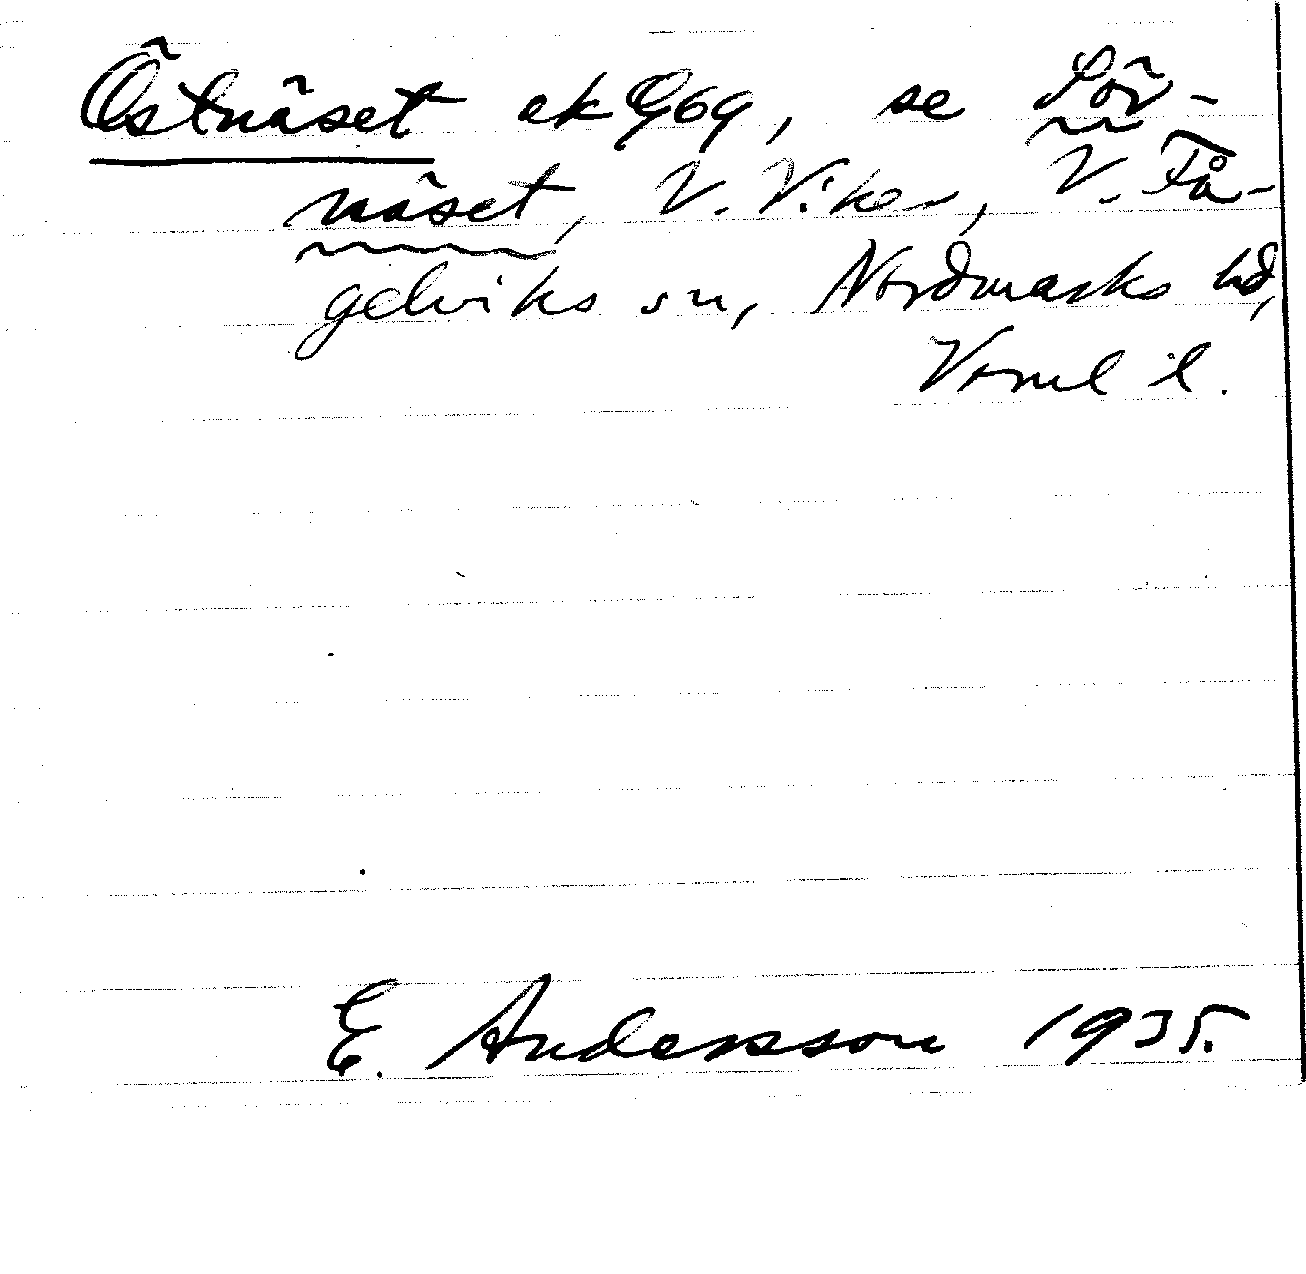 Östnäset ek 969, se Löv-
näset, V. Viker, V. Få-
gelviks sn, Nordmarks hd,
Verml l.
E. Andersson 1935.